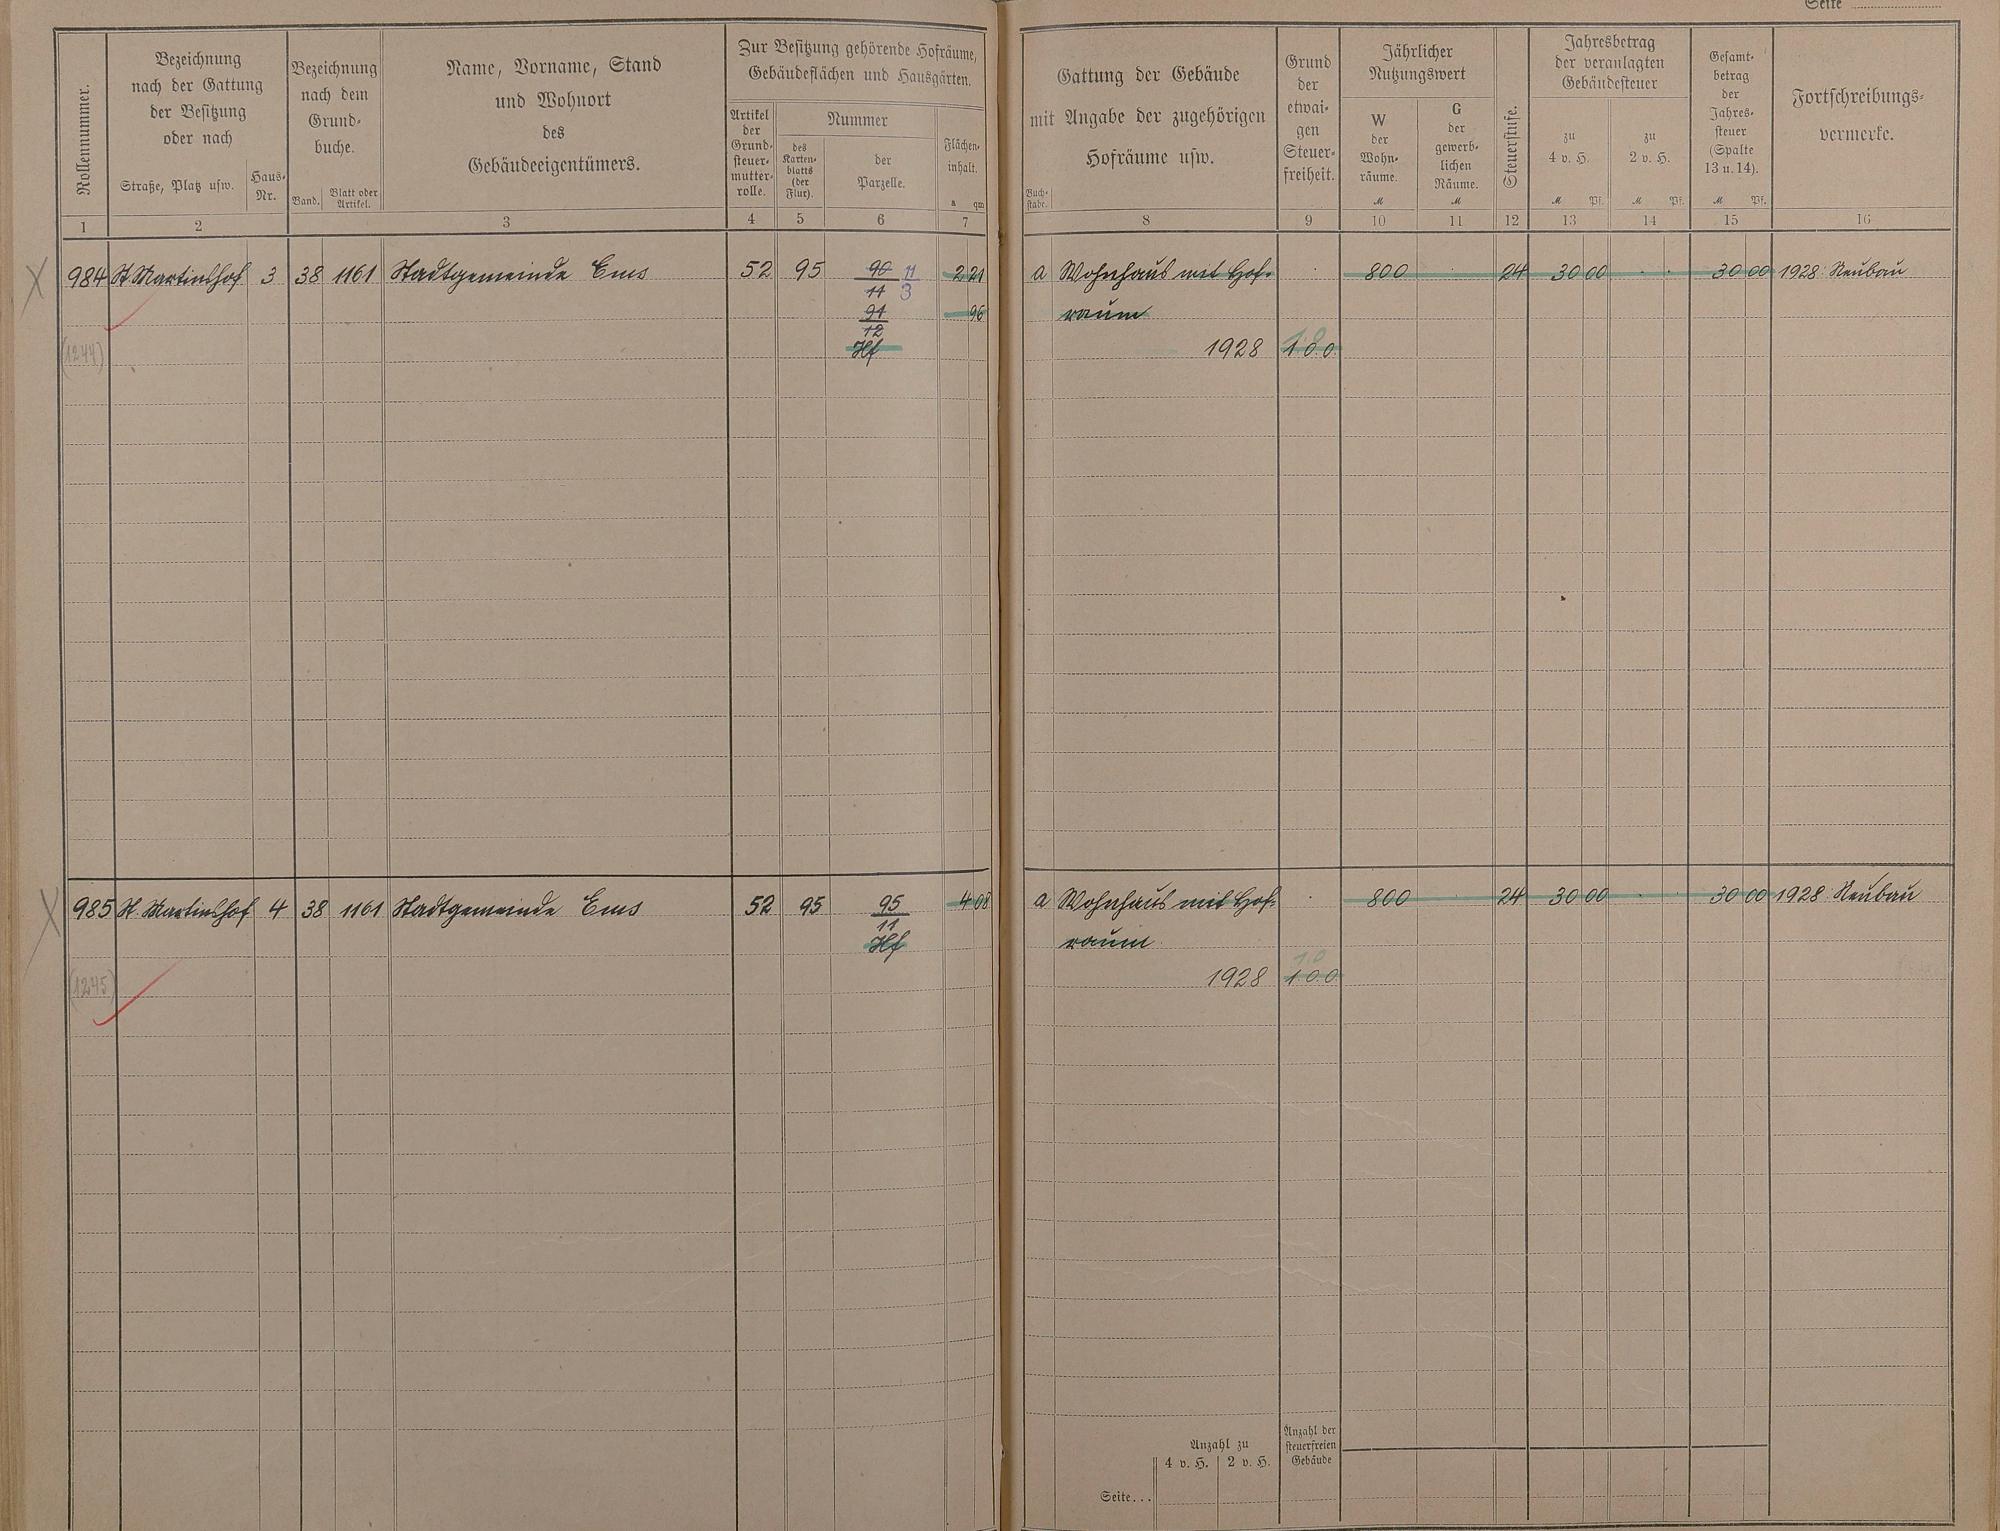 Seite
Rollennummer.
Bezeichnung
nach der Gattung
der Besitzung
oder nach
Straße, Platz usw.
Haus-
Nr.
Bezeichnung
nach dem
Grund-
buche.
Band.
Blatt oder
Artikel.
Name, Vorname, Stand
und Wohnort
des
Gebäudeeigentümers.
Zur Besitzung gehörende Hofräume,
Gebäudeflächen und Hausgärten.
Artikel
der
Grund-
steuer-
mutter-
rolle.
Nummer
des
Karten-
blatts
(der
Flur).
der
Parzelle.
Flächen-
inhalt.
a qm
Gattung der Gebäude
mit Angabe der zugehörigen
Hofräume usw.
Buch-
stabe.
Grund
der
etwai-
gen
Steuer-
freiheit.
Jährlicher
Nutzungswert
W
der
Wohn-
räume.
M
G
der
gewerb-
lichen
Räume.
M
Steuerstufe.
Jahresbetrag
der veranlagten
Gebäudesteuer
zu
4 v. H.
M Pf.
zu
2 v. H.
M Pf.
Gesamt-
betrag
der
Jahres-
steuer
(Spalte
13 u. 14).
M Pf.
Fortschreibungs-
vermerke.
1 2 3 4 5 6 7 8 9 10 11 12 13 14 15 16
984 St Martinshof 3 38 1161 Stadtgemeinde Ems 52 95 90/11 11/3 2 21 a Wohnhaus mit Hof- 800 24 30 00 30 00 1928: Neubau
91/12 96 raum
(1244) Hf 1928 1.0.0.
985 St. Martinshof 4 38 1161 Stadtgemeinde Ems 52 95 95/11 4 08 a Wohnhaus mit Hof- 800 24 30 00 30 00 1928: Neubau
Hf raum
1.0
(1245) 1928 1.0.0.
Anzahl zu
4 v. H. 2 v. H.
Anzahl der
steuerfreien
Gebäude
Seite...